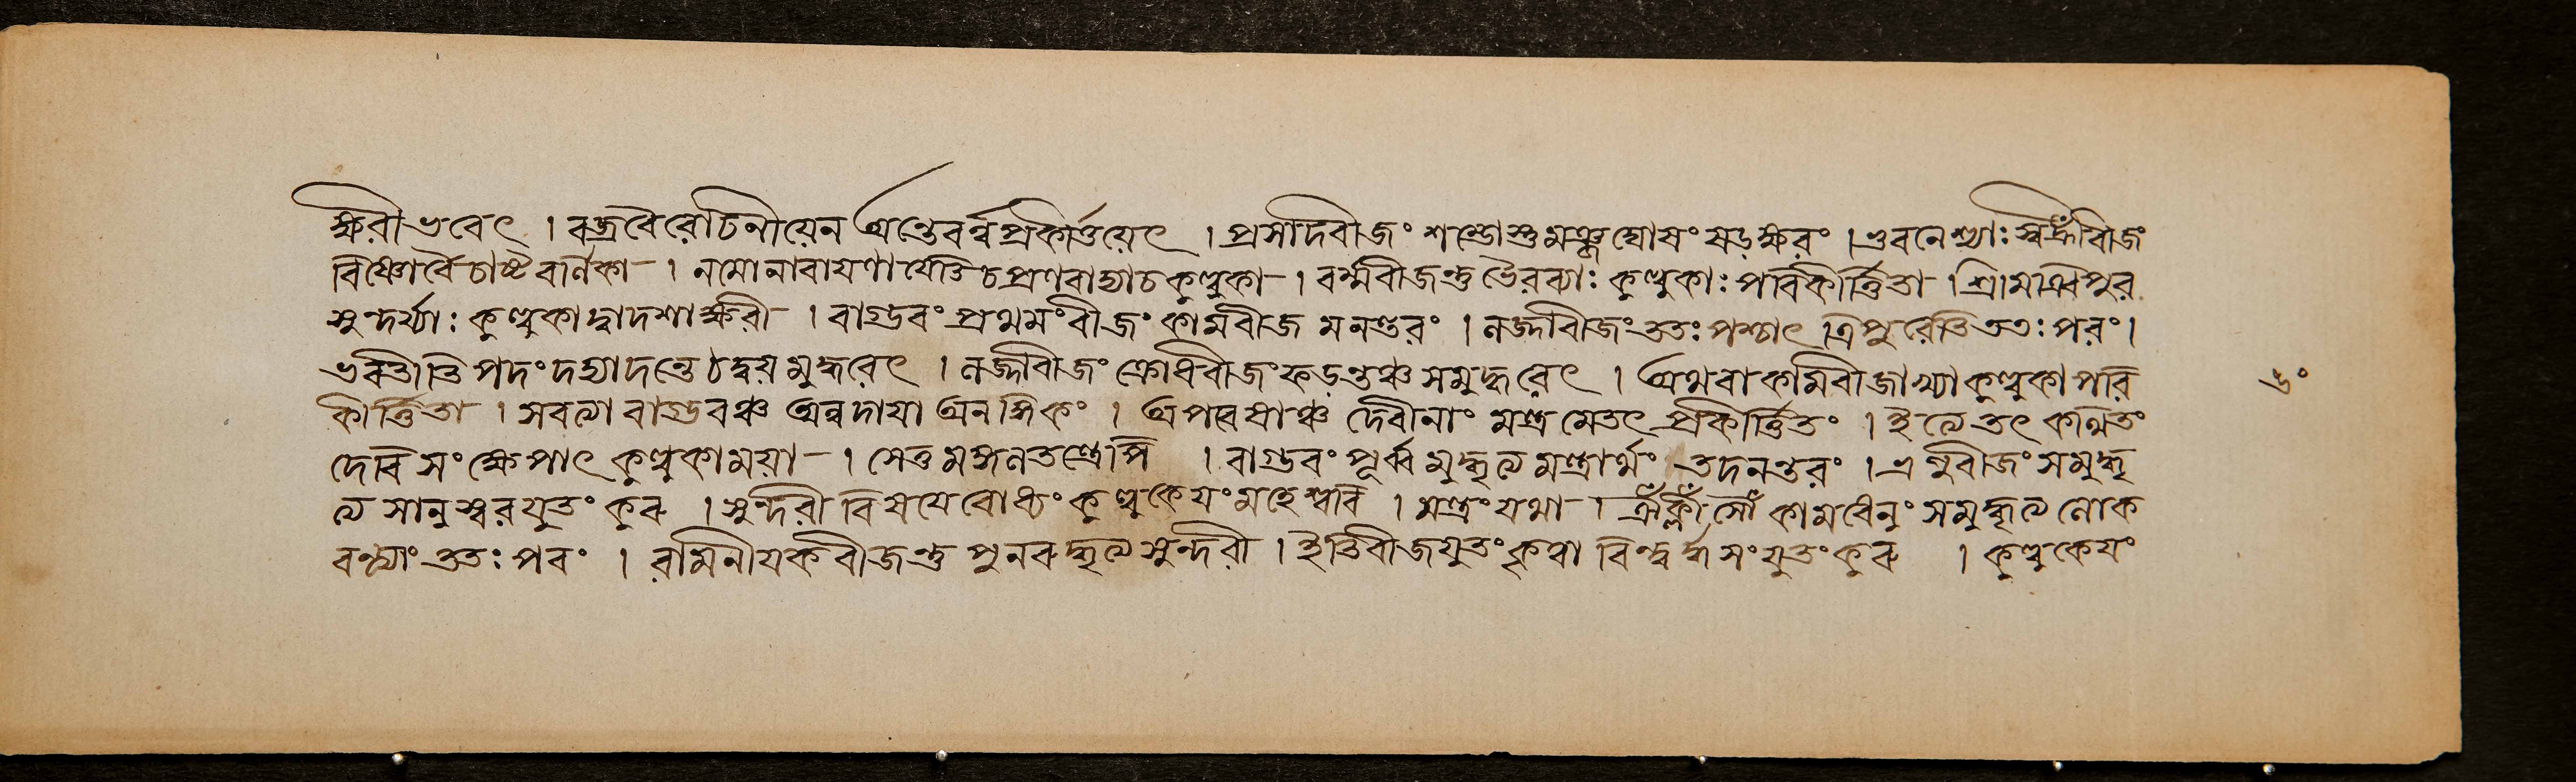 ক্ষরী ভবেৎ । বজ্রবৈরোচনীয়েন অন্তে বর্ম্ম প্রকীর্ত্তয়েৎ । প্রসাদবীজং শম্ভোস্তু মঞ্জুঘোষং ষড়ক্ষরং । ভুবনেশ্যাঃ স্বীজং
বিষ্ণোর্বৈচাষ্টবর্ণিকা । নমোনারায়ণায়েতি চ প্রণবাদ্যাচ কুল্লুকা । বর্ম্মবীজন্তু ভৈরব্যাঃ কুল্লুকাঃ পরিকীর্ত্তিতা । শ্রীমত্রিপুর
সুন্দর্য্যাঃ কুল্লুকা দ্বাদশাক্ষরী । বাগ্ভবং প্রথমং বীজং কামবীজ মনন্তরং । লজ্জাবীজং ততঃ পশ্চাৎ ত্রিপুরেতি ততঃ পরং ।
ভবতীতি পদং দদ্যাদন্তে ঠদ্বয়মুদ্ধরেৎ । লজ্জাবীজং ক্রোধবীজং ফড়ন্তঞ্চ সমুদ্ধরেৎ । অথবা কামবীজাখ্যা কুল্লুকা পরি
কীর্ত্তিতা । বাগ্ভবঞ্চ অন্নদায়া । দেবীনাং মন্ত্রমেতৎ প্রকীর্ত্তিতং । ইত্যেতৎ কথিতং
দেবি সংক্ষেপাৎ কুল্লুকা ময়া । । বাগ্ভবং পূর্ব্বমুদ্ধৃত্য তদনন্তরং । বীজং সমুদ্ধৃ
ত্য সানুস্বরযুতং কুরু । সুন্দরী বিষয়ে বোধ্যং কুল্লুকেয়ং মহেশ্বরি । মন্ত্রং যথা । ঐঁ ক্লীঁ সৌঁ কামধেনুং সমুদ্ধৃত্য লোক
ততঃ পরং । বীজন্তু পুনরুদ্ধৃত্য সুন্দরী । ইতি বীজযুতং কৃত্বা সংযুতং কুরু । কুল্লুকেয়ং